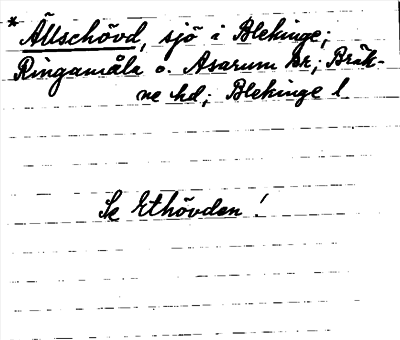 * Ällschövd, sjö i Blekinge;
Ringamåla o. Asarum sn; Bräk-
ne hd; Blekinge l.
Se Ethövden!